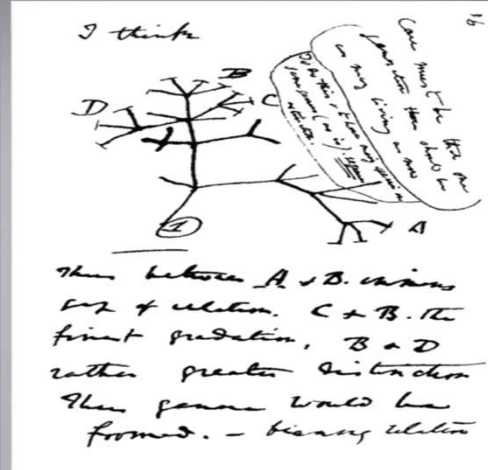 I think
Case must be that one
generation then should be
as many living as now
To do this & to have many species in
same genus (as is) requires
extinction.
B
D
C
A
1
Thus between A & B. immens
gap of relation. C & B. the
finest gradation, B & D
rather greater distinction
Thus genera would be
formed. — bearing relation